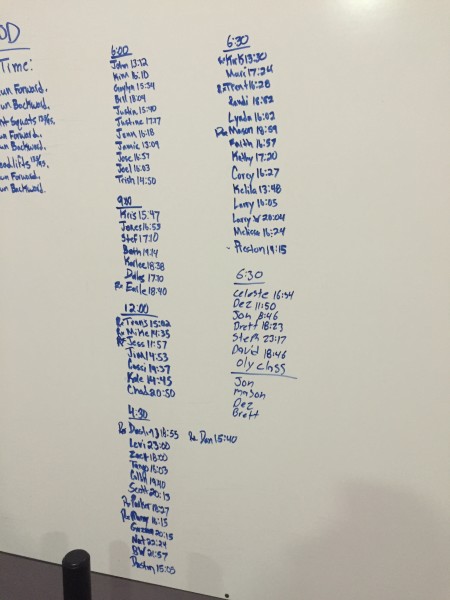 OD
Time:
un Forward.
un Backward.
nt Squats
un Forward.
un Backward.
eadlifts
un Forward.
un Backward.
6:00
John 13:12
Kim 16:10
15:54
Bill 18:04
Justin 15:40
Justine 17:17
Jenn 16:18
Jamie 13:09
Jose 16:57
Joel 16:03
Trish 14:50
9:00
Kris 15:47
James 16:53
Stef 17:10
Beth 19:14
Karlee 18:38
17:10
Rx Earle 18:40
12:00
Rx Travis 15:02
Rx Mike 14:35
Rx Jess 11:57
Jim 14:53
19:37
Kate 14:45
Chad 20:50
4:30
Rx 16:55
Rx Dan 15:40
Levi 23:00
Zack 18:00
16:03
19:40
Scott 20:13
Rx Parker 18:27
Rx 16:15
20:15
Nat 22:24
BW 21:57
15:03
6:30
Kirk 13:30
Mari 17:24
Rx Trent 16:28
Randi 18:02
Lynda 16:02
Mason 18:59
Faith 16:57
Kathy 17:20
Corey 16:27
Kelila 13:48
Larry 16:05
Larry W 20:04
Melissa 16:24
Preston 19:15
6:30
Celeste 16:54
Dez 11:50
Jon 8:46
Brett 18:23
Steph 23:17
David 18:46
Oly Class
Jon
Mason
Dez
Brett